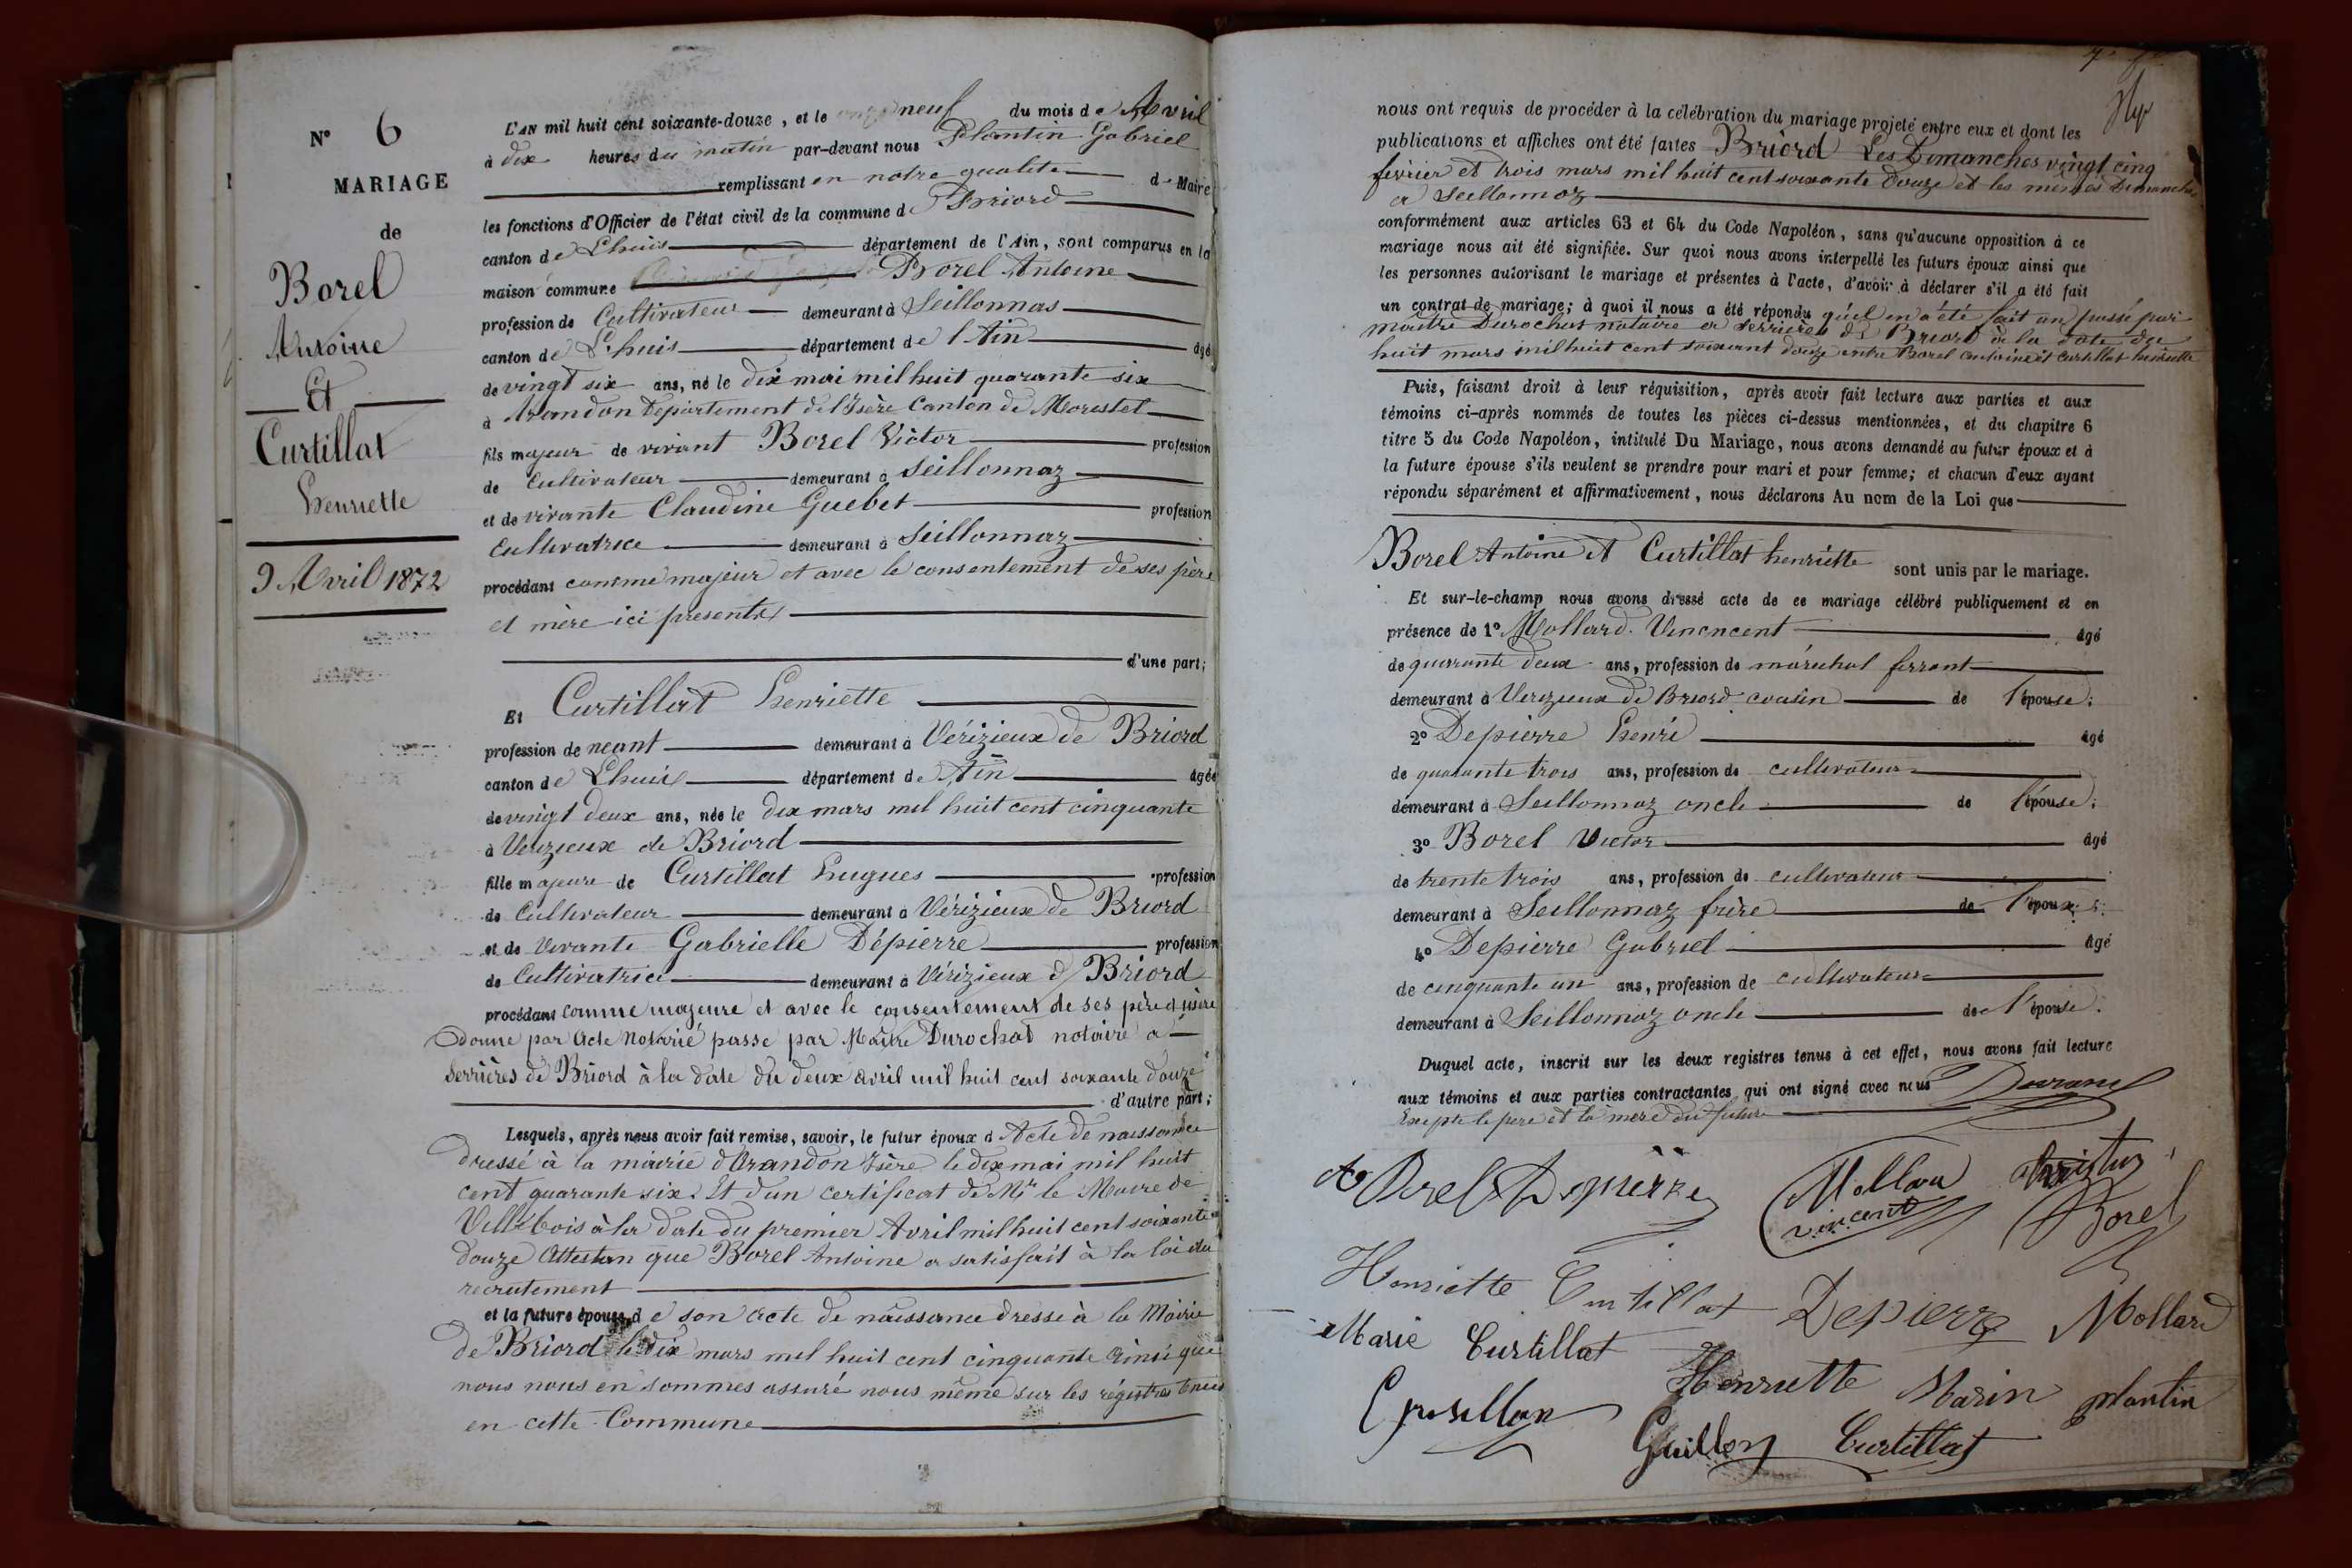 N° 6
MARIAGE
de
Borel
Antoine
Et
Curtillat
henriette
9 Avril 1872
L'AN mil huit cent soixante-douze, et le neuf du mois de Avril
à dix heures du matin par-devant nous Plantin Gabriel
remplissant en notre qualité de Maire
les fonctions d'Officier de l'état civil de la commune de Briord
canton de Lhuis département de l'Ain, sont comparus en la
maison commune Borel Antoine
profession de Cultivateur demeurant à Seillonnas
canton de Lhuis département de l'Ain âgé
de vingt six ans, né le dix mai mil huit quarante six
à Arandon Département de l'Isère Canton de Morestel
fils majeur de vivant Borel Victor profession
de Cultivateur demeurant à Seillonnaz
et de vivante Claudine Guebet profession
Cultivatrice demeurant à Seillonnaz
procédant comme majeur et avec le consentement de ses père
et mère ici presents
d'une part;
Et Curtillat henriette
profession de neant demeurant à Vérizieux de Briord
canton de Lhuis département de Ain âgée
de vingt deux ans, née le dix mars mil huit cent cinquante
à Verizieux de Briord
fille majeure de Curtillat hugues profession
de Cultivateur demeurant à Vérizieux de Briord
et de vivante Gabrielle Dépierre profession
de Cultivatrice demeurant à Vérizieux d Briord
procédant comme majeure et avec le consentement de ses père et mère
donne par acte Notarié passe par Maître Durochat notaire a
Serrières de Briord à la date du deux avril mil huit cent soixante douze
d'autre part;
Lesquels, après nous avoir fait remise, savoir, le futur époux d Acte de naissance
dressé à la mairie d'Arandon Isère le dix mai mil huit
cent quarante six. Et d'un certificat de Mr le Maire de
Villebois à la date du premier Avril mil huit cent soixante
douze Attestan que Borel Antoine a satisfait à la loi du
recrutement
et la future épouse de son acte de naissance dresse à la Mairie
de Briord le dix mars mil huit cent cinquante ainsi que
nous nous en sommes assuré nous même sur les régistres tenus
en cette Commune
nous ont requis de procéder à la célébration du mariage projeté entre eux et dont les
publications et affiches ont été faites Briord Les Dimanches vingt cinq
février et trois mars mil huit cent soixante douze et les mêmes Dimanches
a Seillonnoz
conformément aux articles 63 et 64 du Code Napoléon, sans qu'aucune opposition à ce
mariage nous ait été signifiée. Sur quoi nous avons interpellé les futurs époux ainsi que
les personnes autorisant le mariage et présentes à l'acte, d'avoir à déclarer s'il a été fait
un contrat de mariage; à quoi il nous a été répondu qu'il en a été fait un passé par
maître Durochat notaire a Serrieres de Briord à la date du
huit mars mil huit cent soixant douze entre Borel antoine et Curtillat henriette
Puis, faisant droit à leur réquisition, après avoir fait lecture aux parties et aux
témoins ci-après nommés de toutes les pièces ci-dessus mentionnées, et du chapitre 6
titre 5 du Code Napoléon, intitulé Du Mariage, nous avons demandé au futur époux et à
la future épouse s'ils veulent se prendre pour mari et pour femme; et chacun d'eux ayant
répondu séparément et affirmativement, nous déclarons Au nom de la Loi que
Borel Antoine et Curtillat henriette sont unis par le mariage.
Et sur-le-champ nous avons dressé acte de ce mariage célébré publiquement et en
présence de 1° Mollard Venencent âgé
de quarante deux ans, profession de maréchal ferrant
demeurant à Verizieux de Briord cousin de l'épouse;
2° Depierre henri âgé
de quarante trois ans, profession de cultivateur
demeurant à Seillonnaz oncle de l'épouse;
3° Borel Victor âgé
de trente trois ans, profession de cultivateur
demeurant à Seillonnaz frère de l'époux;
4° Depierre Gabriel âgé
de cinquante un ans, profession de cultivateur
demeurant à Seillonnaz oncle de l'épouse.
Duquel acte, inscrit sur les deux registres tenus à cet effet, nous avons fait lecture
aux témoins et aux parties contractantes qui ont signé avec nous
Excepte le pere et la mere du futur
Borel Depierre Mollard vincent
Borel
Henriette Curtillat Depierre Mollard
Marie Curtillat Henriette Marin plantin
Guillon Curtillat